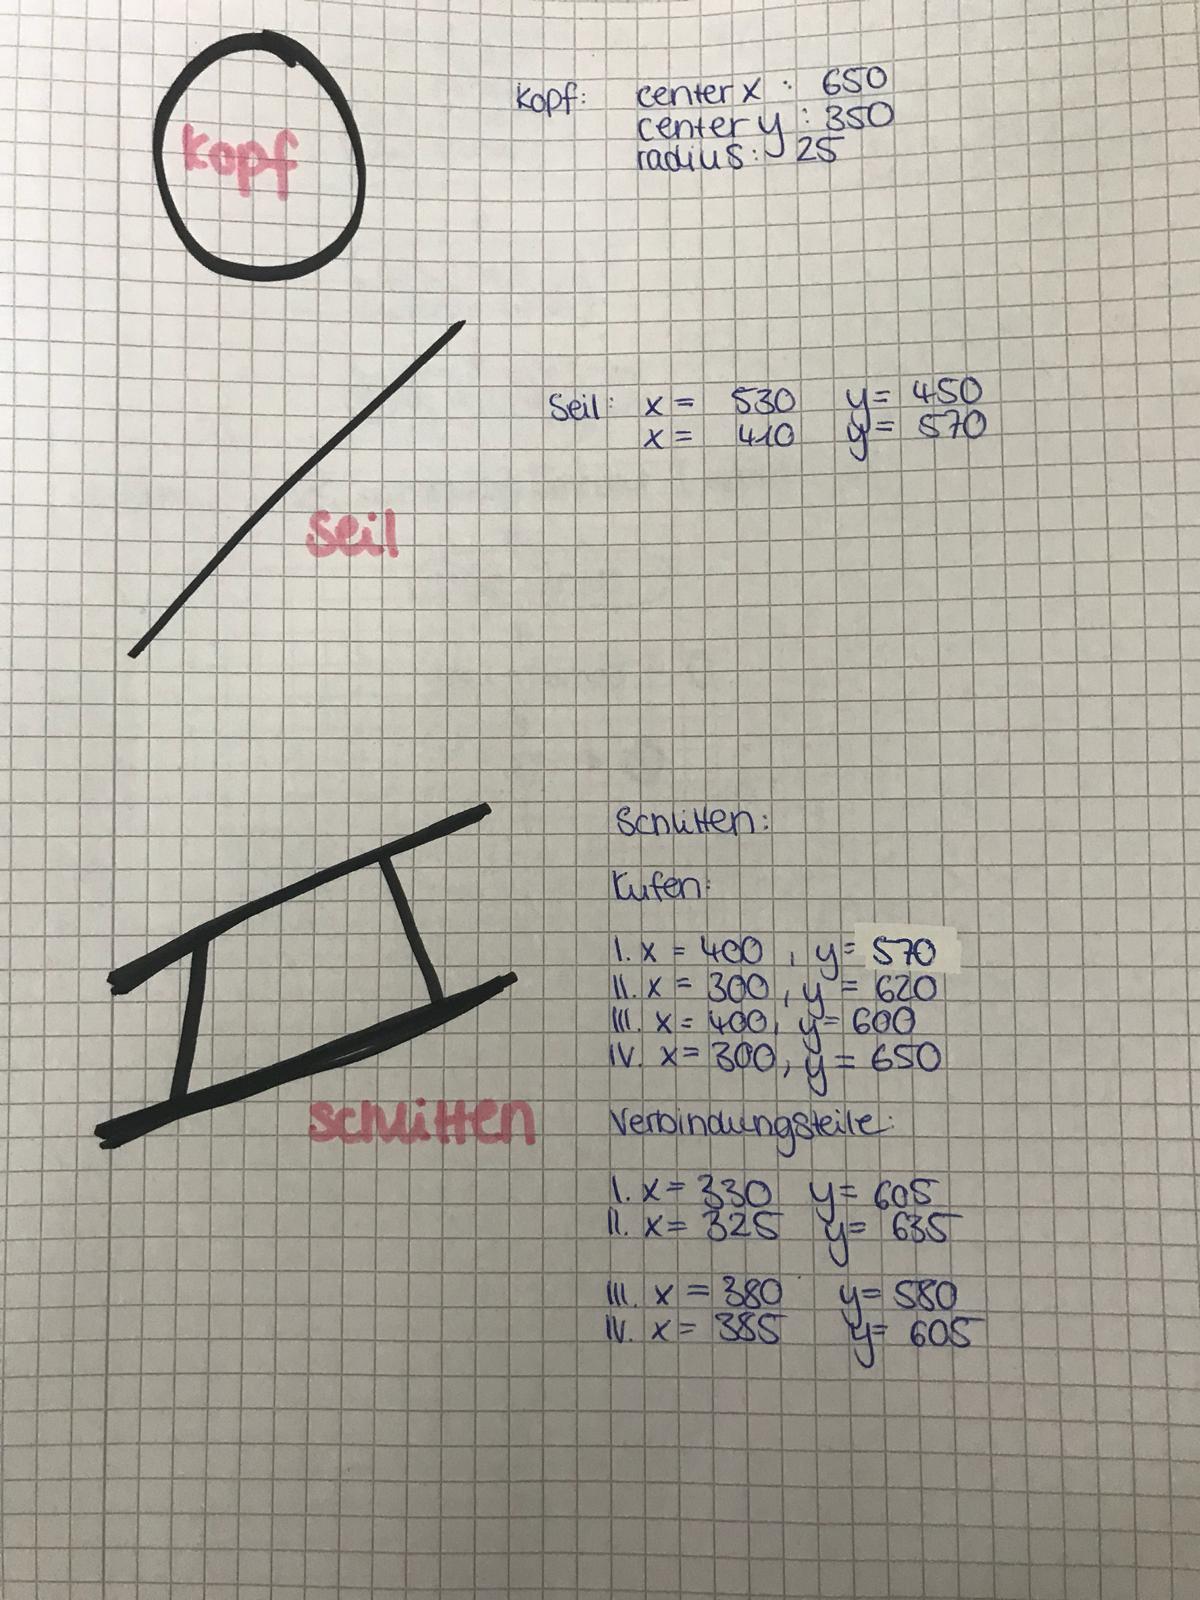 Kopf
Kopf: center x : 650
center y : 350
radius: 25
Seil: x = 530 y = 450
x = 410 y = 570
Seil
Schlitten:
Kufen:
I. x = 400 , y = 570
II. x = 300, y = 620
III. x = 400, y = 600
IV. x = 300, y = 650
Schlitten
Verbindungsteile:
I. x = 330 y = 605
II. x = 325 y = 635
III. x = 380 y = 580
IV. x = 385 y = 605